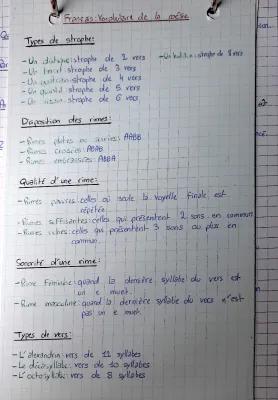 Français: Vocabulaire de la poésie
Types de strophe:
- Un distique: strophe de 2 vers - Un huitain: strophe de 8 vers
- Un tercet: strophe de 3 vers
- Un quatrain: strophe de 4 vers
- Un quintil: strophe de 5 vers
- Un sizain: strophe de 6 vers
Disposition des rimes:
- Rimes plates ou suivies: AABB
- Rimes croisées: ABAB
- Rimes embrassées: ABBA
Qualité d'une rime:
- Rimes pauvres: celles où seule la voyelle finale est
répétée.
- Rimes suffisantes: celles qui présentent 2 sons en commun
- Rimes riches: celles qui présentent 3 sons ou plus en
commun.
Sonorité d'une rime:
- Rime féminine: quand la dernière syllabe du vers est
un e muet.
- Rime masculine: quand la dernière syllabe du vers n'est
pas un e muet.
Types de vers:
- L'alexandrin: vers de 12 syllabes
- Le décasyllabe: vers de 10 syllabes
- L'octosyllabe: vers de 8 syllabes